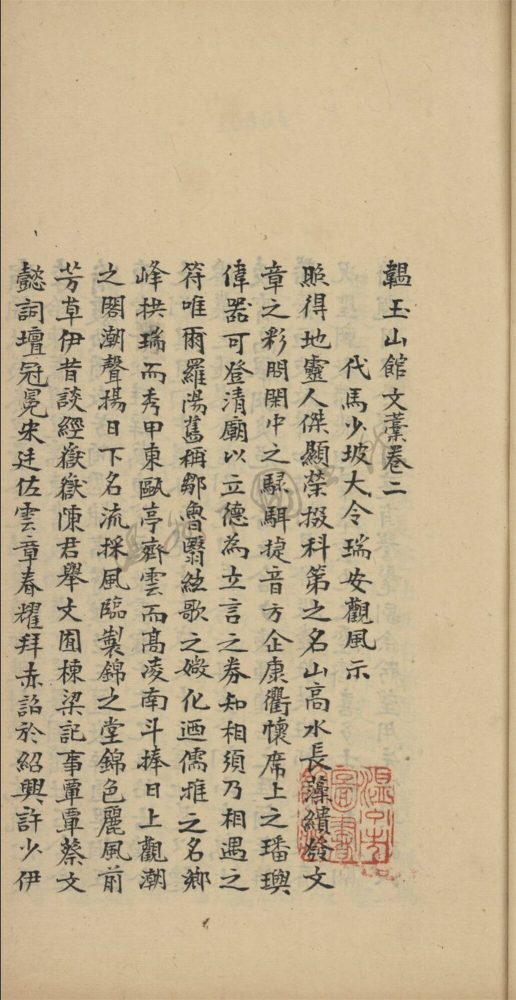 韞玉山館文藁卷二
代馬少坡大令瑞安觀風示
照得地靈人傑顯榮掇科第之名山高水長藻繢發文
章之彩閑閑中之騄駬捷音方企康衢懷席上之璠璵
偉器可登清廟以立德為立言之券知相須乃相遇之
符唯爾羅陽舊稱鄒魯翳絃歌之媺化迺儒雅之名鄉
峰拱瑞而秀甲東甌亭齊雲而高凌南斗捧日上觀潮
之閣潮聲揚日下名流採風臨製錦之堂錦色麗風前
芳草伊昔談經嶽嶽陳君舉文囿棟梁記事覃覃蔡文
懿詞壇冠冕宋廷佐雲章春耀拜赤詔於紹興許少伊
溫州 圖書